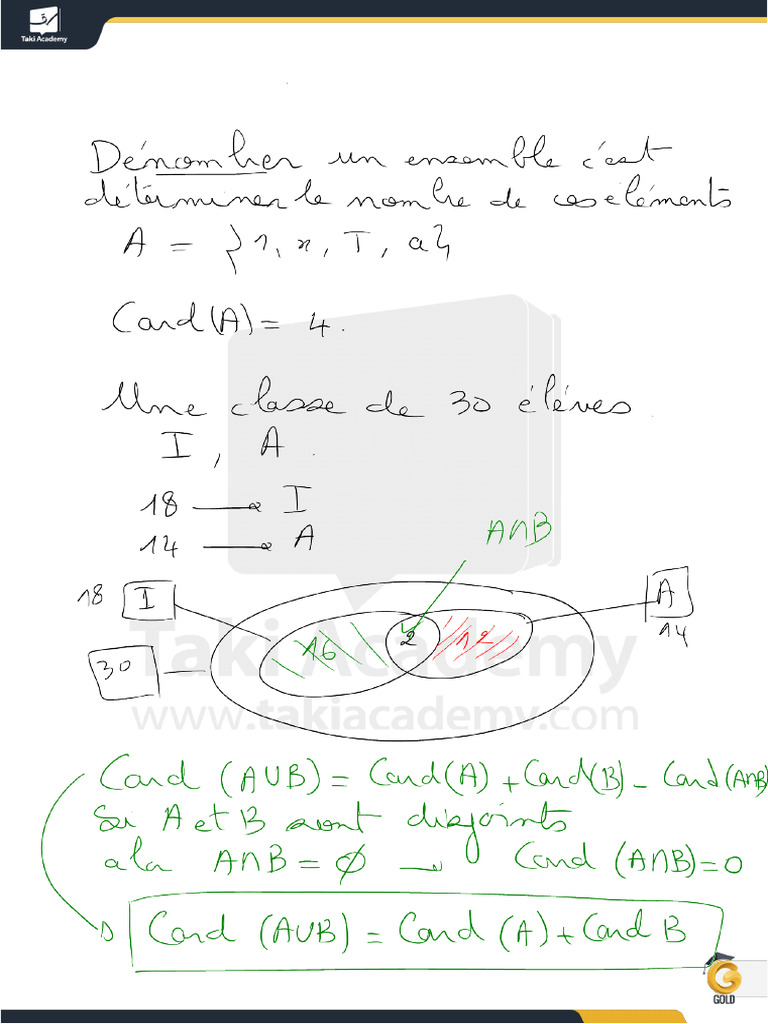 Taki Academy
Dénombrer un ensemble c'est
déterminer le nombre de ces éléments
A = {1, x, T, a}
Card(A) = 4.
Une classe de 30 éléves.
I, A.
18 → I
14 → A
A∩B
18 I
A
14
16 2 12
30
Taki Academy
www.takiacademy.com
Card (A∪B) = Card(A) + Card(B) - Card(A∩B)
Si A et B sont disjoints
alor A∩B = ∅ → Card (A∩B) = 0
Card (A∪B) = Card (A) + Card B
G
GOLD